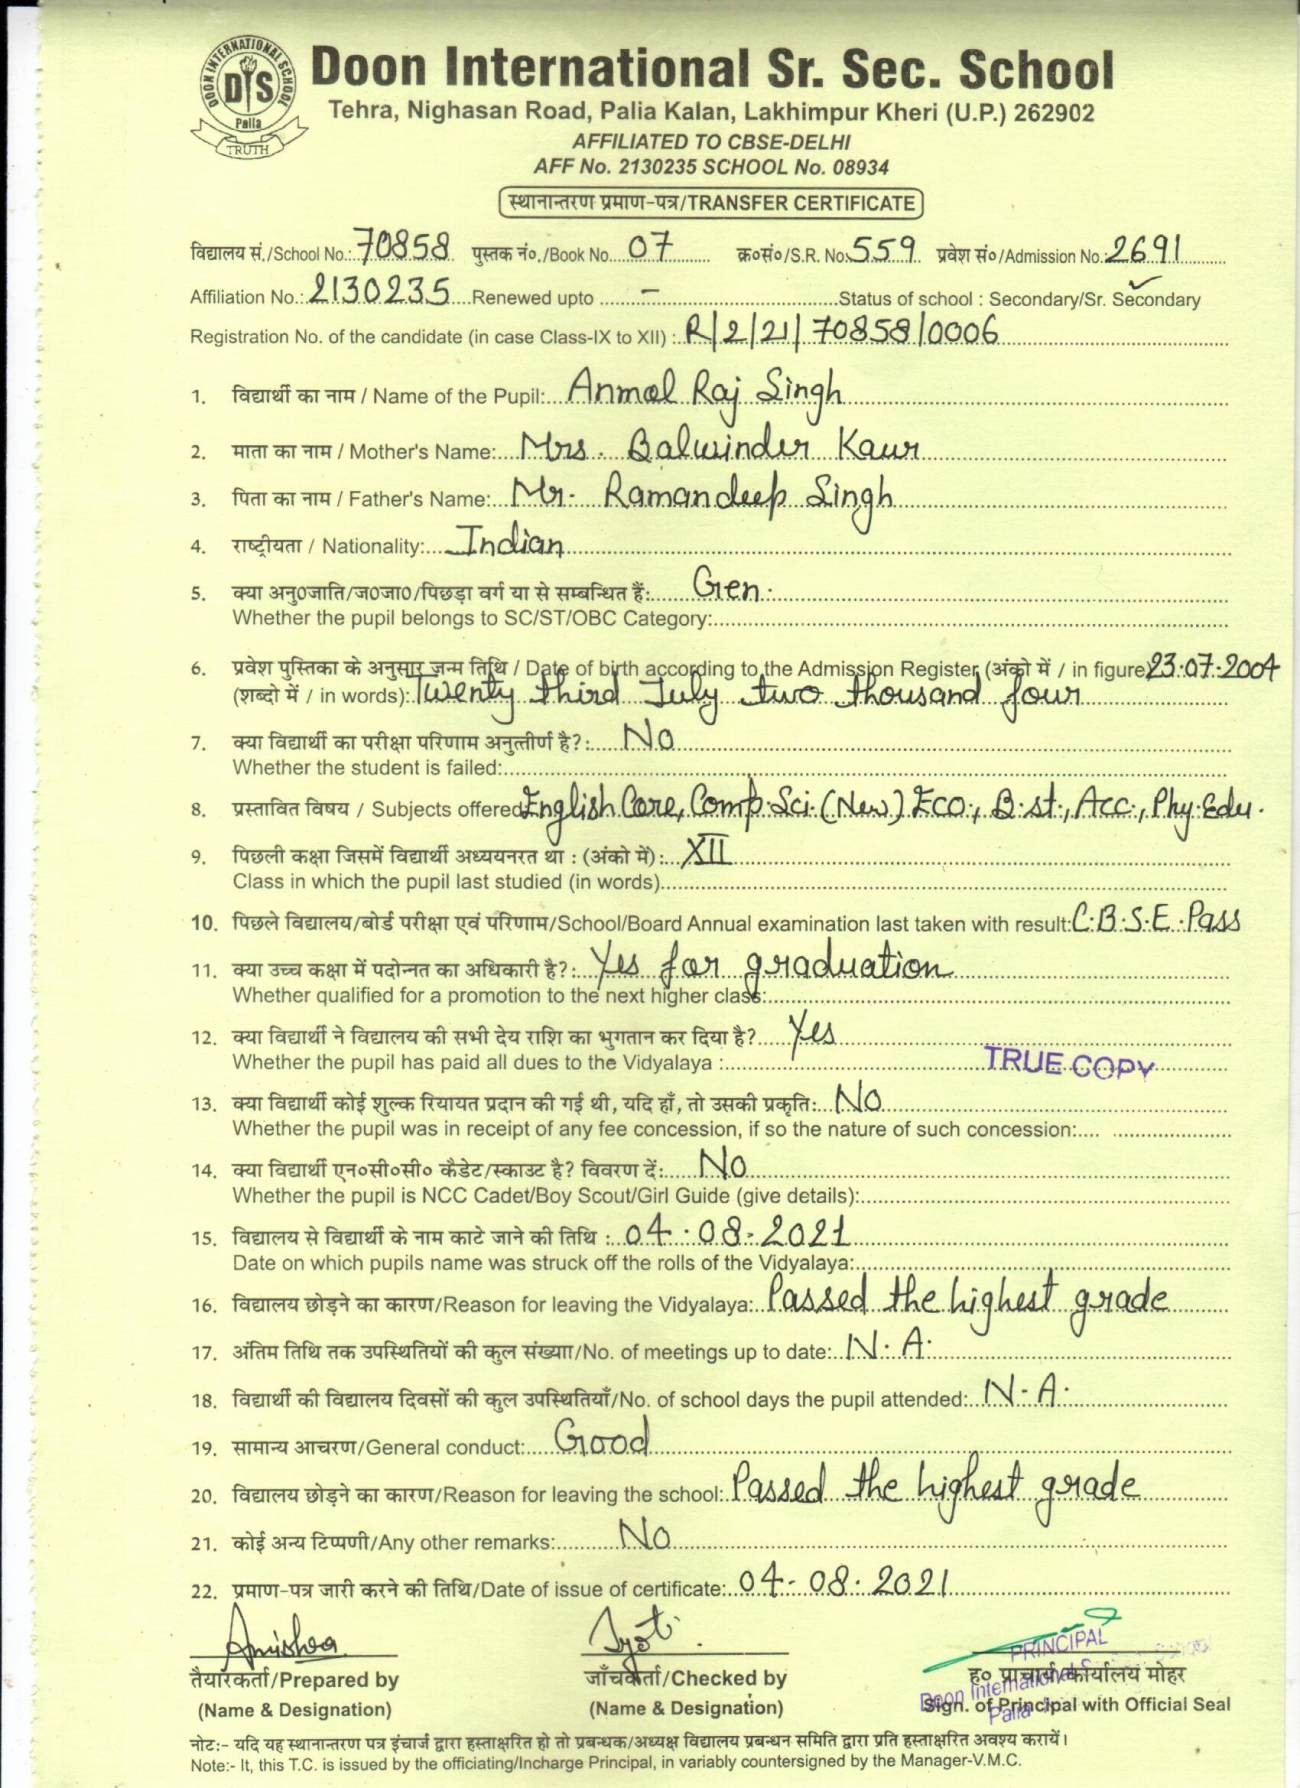 DOON INTERNATIONAL SCHOOL
DIS
Palia
TRUTH
Doon International Sr. Sec. School
Tehra, Nighasan Road, Palia Kalan, Lakhimpur Kheri (U.P.) 262902
AFFILIATED TO CBSE-DELHI
AFF No. 2130235 SCHOOL No. 08934
स्थानान्तरण प्रमाण-पत्र/TRANSFER CERTIFICATE
विद्यालय सं./School No.: 70858 पुस्तक नं०./Book No. 07 क्र०सं०/S.R. No. 559 प्रवेश सं०/Admission No. 2691
Affiliation No.: 2130235 Renewed upto - Status of school : Secondary/Sr. Secondary
Registration No. of the candidate (in case Class-IX to XII) : R/2/21/70858/0006
1. विद्यार्थी का नाम / Name of the Pupil: Anmol Raj Singh
2. माता का नाम / Mother's Name: Mrs. Balwinder Kaur
3. पिता का नाम / Father's Name: Mr. Ramandeep Singh
4. राष्ट्रीयता / Nationality: Indian
5. क्या अनु0जाति/ज0जा0/पिछड़ा वर्ग या से सम्बन्धित हैं: Gen.
Whether the pupil belongs to SC/ST/OBC Category:
6. प्रवेश पुस्तिका के अनुसार जन्म तिथि / Date of birth according to the Admission Register (अंको में / in figure) 23.07.2004
(शब्दो में / in words): Twenty third July two thousand four
7. क्या विद्यार्थी का परीक्षा परिणाम अनुत्तीर्ण है?: No
Whether the student is failed:
8. प्रस्तावित विषय / Subjects offered English Core, Comp. Sci. (New) Eco., B.st., Acc., Phy. Edu.
9. पिछली कक्षा जिसमें विद्यार्थी अध्ययनरत था : (अंको में): XII
Class in which the pupil last studied (in words)
10. पिछले विद्यालय/बोर्ड परीक्षा एवं परिणाम/School/Board Annual examination last taken with result: C.B.S.E. Pass
11. क्या उच्च कक्षा में पदोन्नत का अधिकारी है?: Yes for graduation
Whether qualified for a promotion to the next higher class:
12. क्या विद्यार्थी ने विद्यालय की सभी देय राशि का भुगतान कर दिया है? Yes
Whether the pupil has paid all dues to the Vidyalaya : TRUE COPY
13. क्या विद्यार्थी कोई शुल्क रियायत प्रदान की गई थी, यदि हाँ, तो उसकी प्रकृति: No
Whether the pupil was in receipt of any fee concession, if so the nature of such concession:
14. क्या विद्यार्थी एन०सी०सी० कैडेट/स्काउट है? विवरण दें: No
Whether the pupil is NCC Cadet/Boy Scout/Girl Guide (give details):
15. विद्यालय से विद्यार्थी के नाम काटे जाने की तिथि : 04.08.2021
Date on which pupils name was struck off the rolls of the Vidyalaya:
16. विद्यालय छोड़ने का कारण/Reason for leaving the Vidyalaya: Passed the highest grade
17. अंतिम तिथि तक उपस्थितियों की कुल संख्याा/No. of meetings up to date: N.A.
18. विद्यार्थी की विद्यालय दिवसों की कुल उपस्थितियाँ/No. of school days the pupil attended: N.A.
19. सामान्य आचरण/General conduct: Good
20. विद्यालय छोड़ने का कारण/Reason for leaving the school: Passed the highest grade
21. कोई अन्य टिप्पणी/Any other remarks: No
22. प्रमाण-पत्र जारी करने की तिथि/Date of issue of certificate: 04.08.2021
Anishaa Jyoti PRINCIPAL
तैयारकर्ता/Prepared by जाँचकर्ता/Checked by ह० प्राचार्य कार्यालय मोहर
Doon International
(Name & Designation) (Name & Designation) Sign. of Principal with Official Seal
Palia
नोट:- यदि यह स्थानान्तरण पत्र इंचार्ज द्वारा हस्ताक्षरित हो तो प्रबन्धक/अध्यक्ष विद्यालय प्रबन्धन समिति द्वारा प्रति हस्ताक्षरित अवश्य करायें।
Note:- It, this T.C. is issued by the officiating/Incharge Principal, in variably countersigned by the Manager-V.M.C.